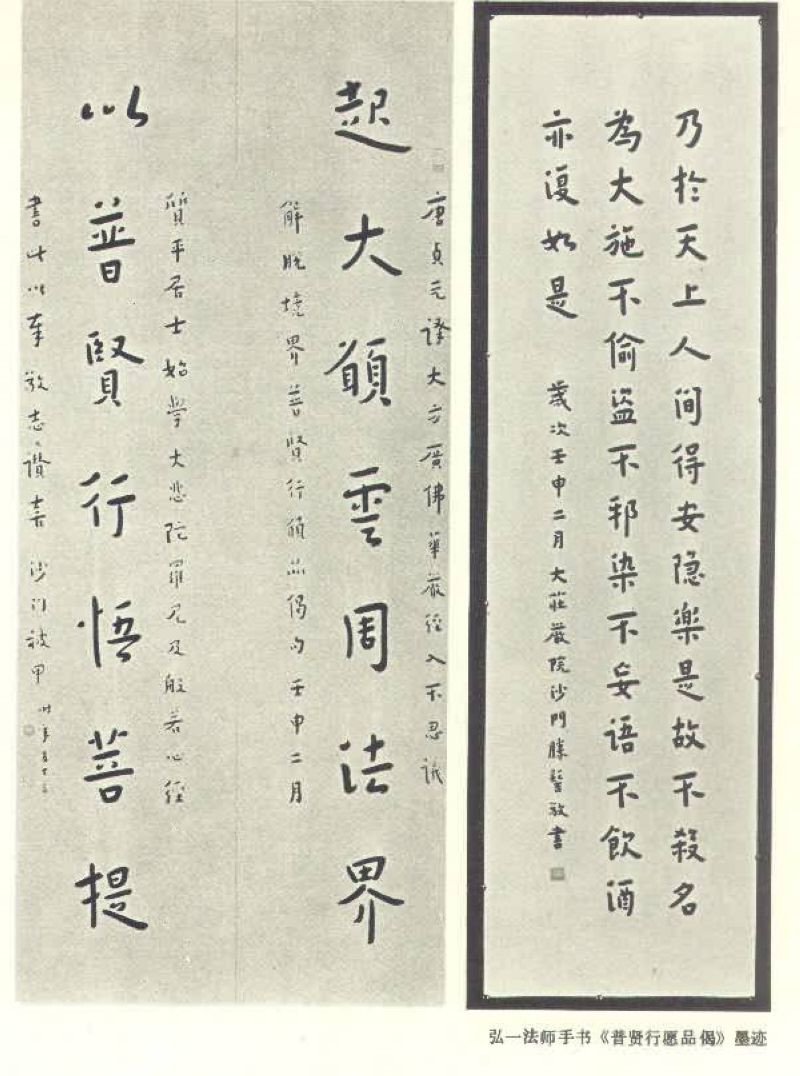 乃於天上人间得安隐樂是故不殺名
為大施不偷盗不邪染不妄语不飲酒
亦復如是
歲次壬申二月大莊嚴院沙門勝髻敬書
唐貞元譯大方廣佛華嚴經入不思議
起大願雲周法界
解脱境界普賢行願品偈句壬申二月
質平居士始學大悲陀羅尼及般若心經
以普賢行悟菩提
書此以奉敬志讚喜沙门被甲時年五十三
弘一法师手书《普贤行愿品偈》墨迹